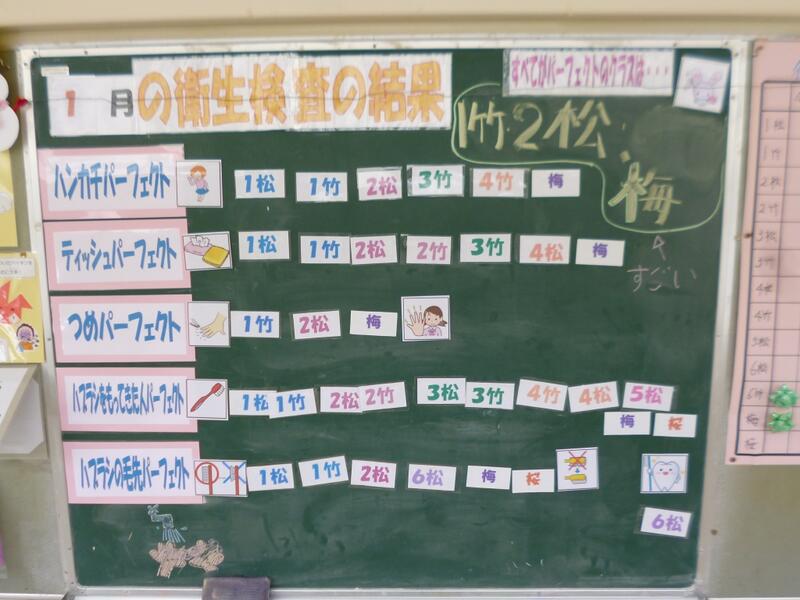 1月の衛生検査の結果
すべてがパーフェクトのクラスは・・・
1竹・2松、
梅
すごい
ハンカチパーフェクト 1松 1竹 2松 3竹 4竹 梅
ティッシュパーフェクト 1松 1竹 2松 2竹 3竹 4松 梅
つめパーフェクト 1竹 2松 梅
ハブラシをもってきたパーフェクト 1松 1竹 2松 2竹 3松 3竹 4竹 4松 5松
梅 桜
ハブラシの毛先パーフェクト 1松 1竹 2松 6松 梅 桜
6松
1松
1竹
2松
2竹
3松
3竹
4松
4竹
5松
6松
6竹
梅
桜